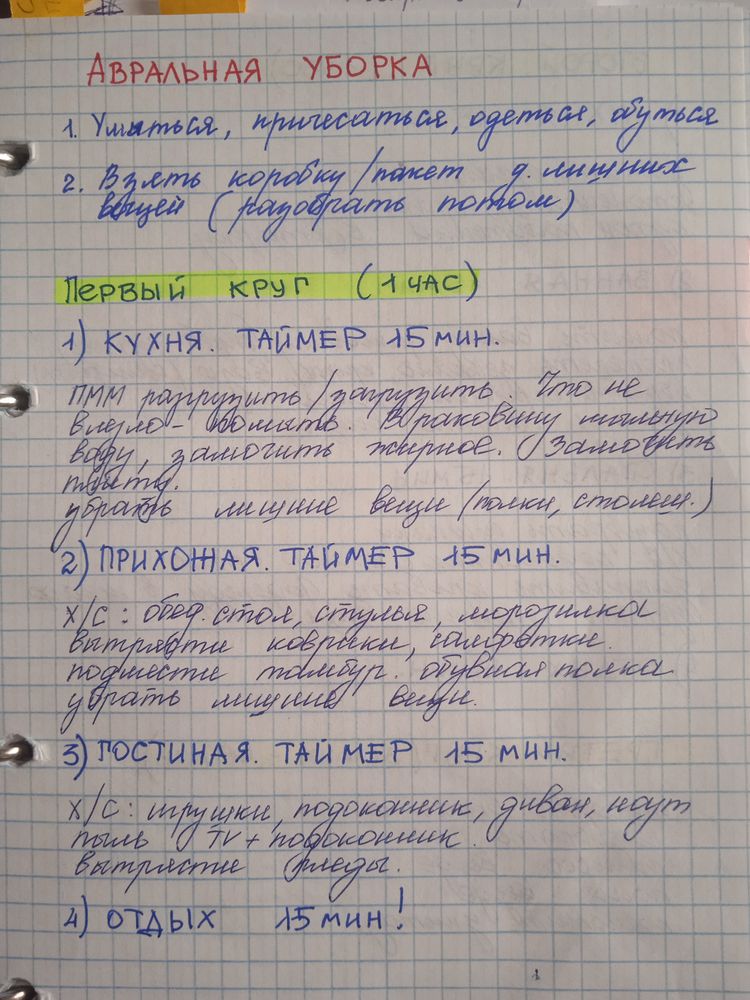 АВРАЛЬНАЯ УБОРКА
1. Умыться, причесаться, одеться, обуться
2. Взять коробку/пакет д. лишних
вещей (разобрать потом)
ПЕРВЫЙ КРУГ (1 ЧАС)
1) КУХНЯ. ТАЙМЕР 15 МИН.
ПММ разгрузить/загрузить. Что не
влезло - помыть. В раковину мыльную
воду, замочить жирное. Замочить
плиту.
убрать лишние вещи (полки, столеш.)
2) ПРИХОЖАЯ. ТАЙМЕР 15 МИН.
Х/С: обед. стол, стулья, морозилка
вытрясти коврики, салфетки.
подмести тамбур. обувная полка
убрать лишние вещи.
3) ГОСТИНАЯ. ТАЙМЕР 15 МИН.
Х/С: игрушки, подоконник, диван, ноут
пыль TV + подоконник.
вытрясти пледы.
4) ОТДЫХ 15 МИН!
1